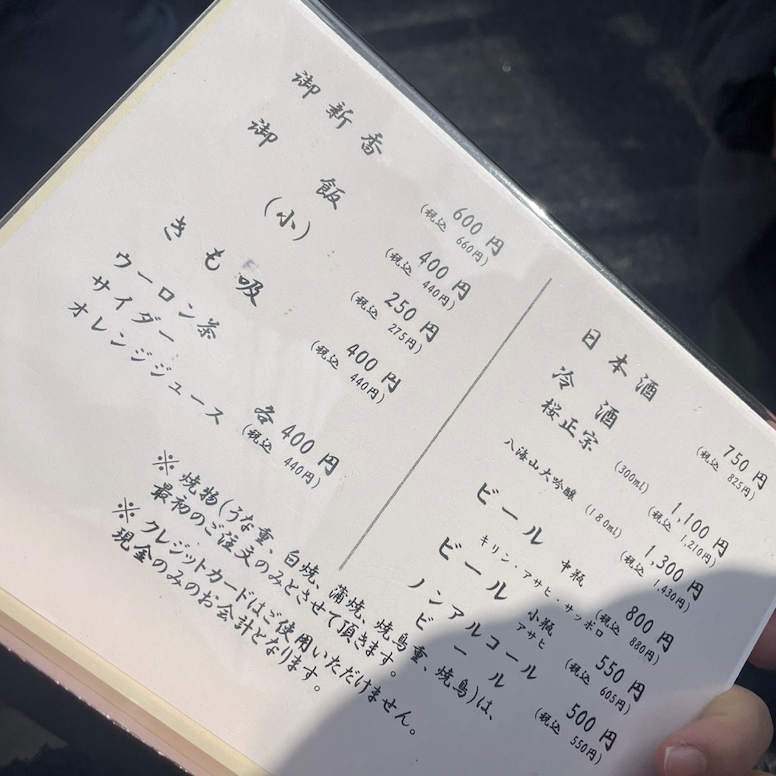 御新香 600円
(税込 660円)
御飯 400円
(税込 440円)
(小) 250円
(税込 275円)
きも吸 400円
(税込 440円)
ウーロン茶
サイダー
オレンジジュース
各400円
(税込 440円)
※焼物(うな重、白焼、蒲焼、焼鳥重、焼鳥)は、
最初のご注文のみとさせて頂きます。
※クレジットカードはご使用いただけません。
現金のみのお会計となります。
日本酒 750円
(税込 825円)
冷酒
桜正宗 (300ml) 1,100円
(税込 1,210円)
八海山大吟醸 (180ml) 1,300円
(税込 1,430円)
ビール 中瓶 800円
キリン・アサヒ・サッポロ (税込 880円)
ビール 小瓶 550円
アサヒ (税込 605円)
ノンアルコール
ビール 500円
(税込 550円)